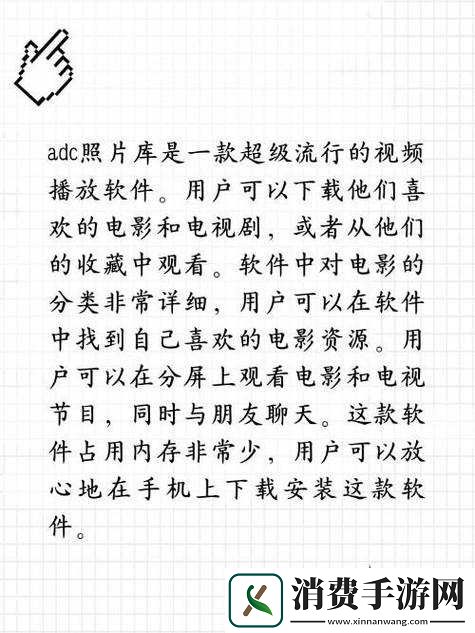 adc照片库是一款超级流行的视频
播放软件。用户可以下载他们喜
欢的电影和电视剧，或者从他们
的收藏中观看。软件中对电影的
分类非常详细，用户可以在软件
中找到自己喜欢的电影资源。用
户可以在分屏上观看电影和电视
节目，同时与朋友聊天。这款软
件占用内存非常少，用户可以放
心地在手机上下载安装这款软
件。
消费手游网
www.xinnanwang.com